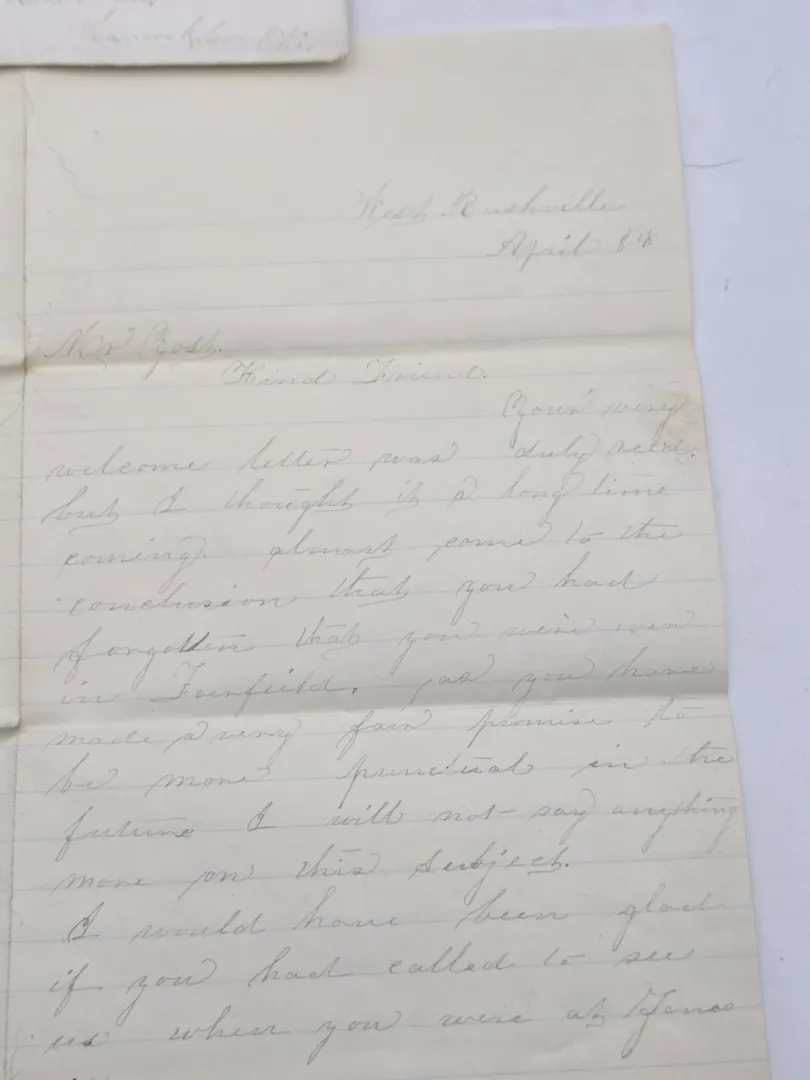 West Rushville
April 8th
Mr Yost.
Kind Friend.
Your very
welcome letter was duly recd.
but I thought it a long time
coming. almost come to the
conclusion that you had
forgotten that you were ever
in Fairfield, as you have
made a very fair promise to
be more punctual in the
future I will not say anything
more on this subject.
I would have been glad
if you had called to see
us when you were at